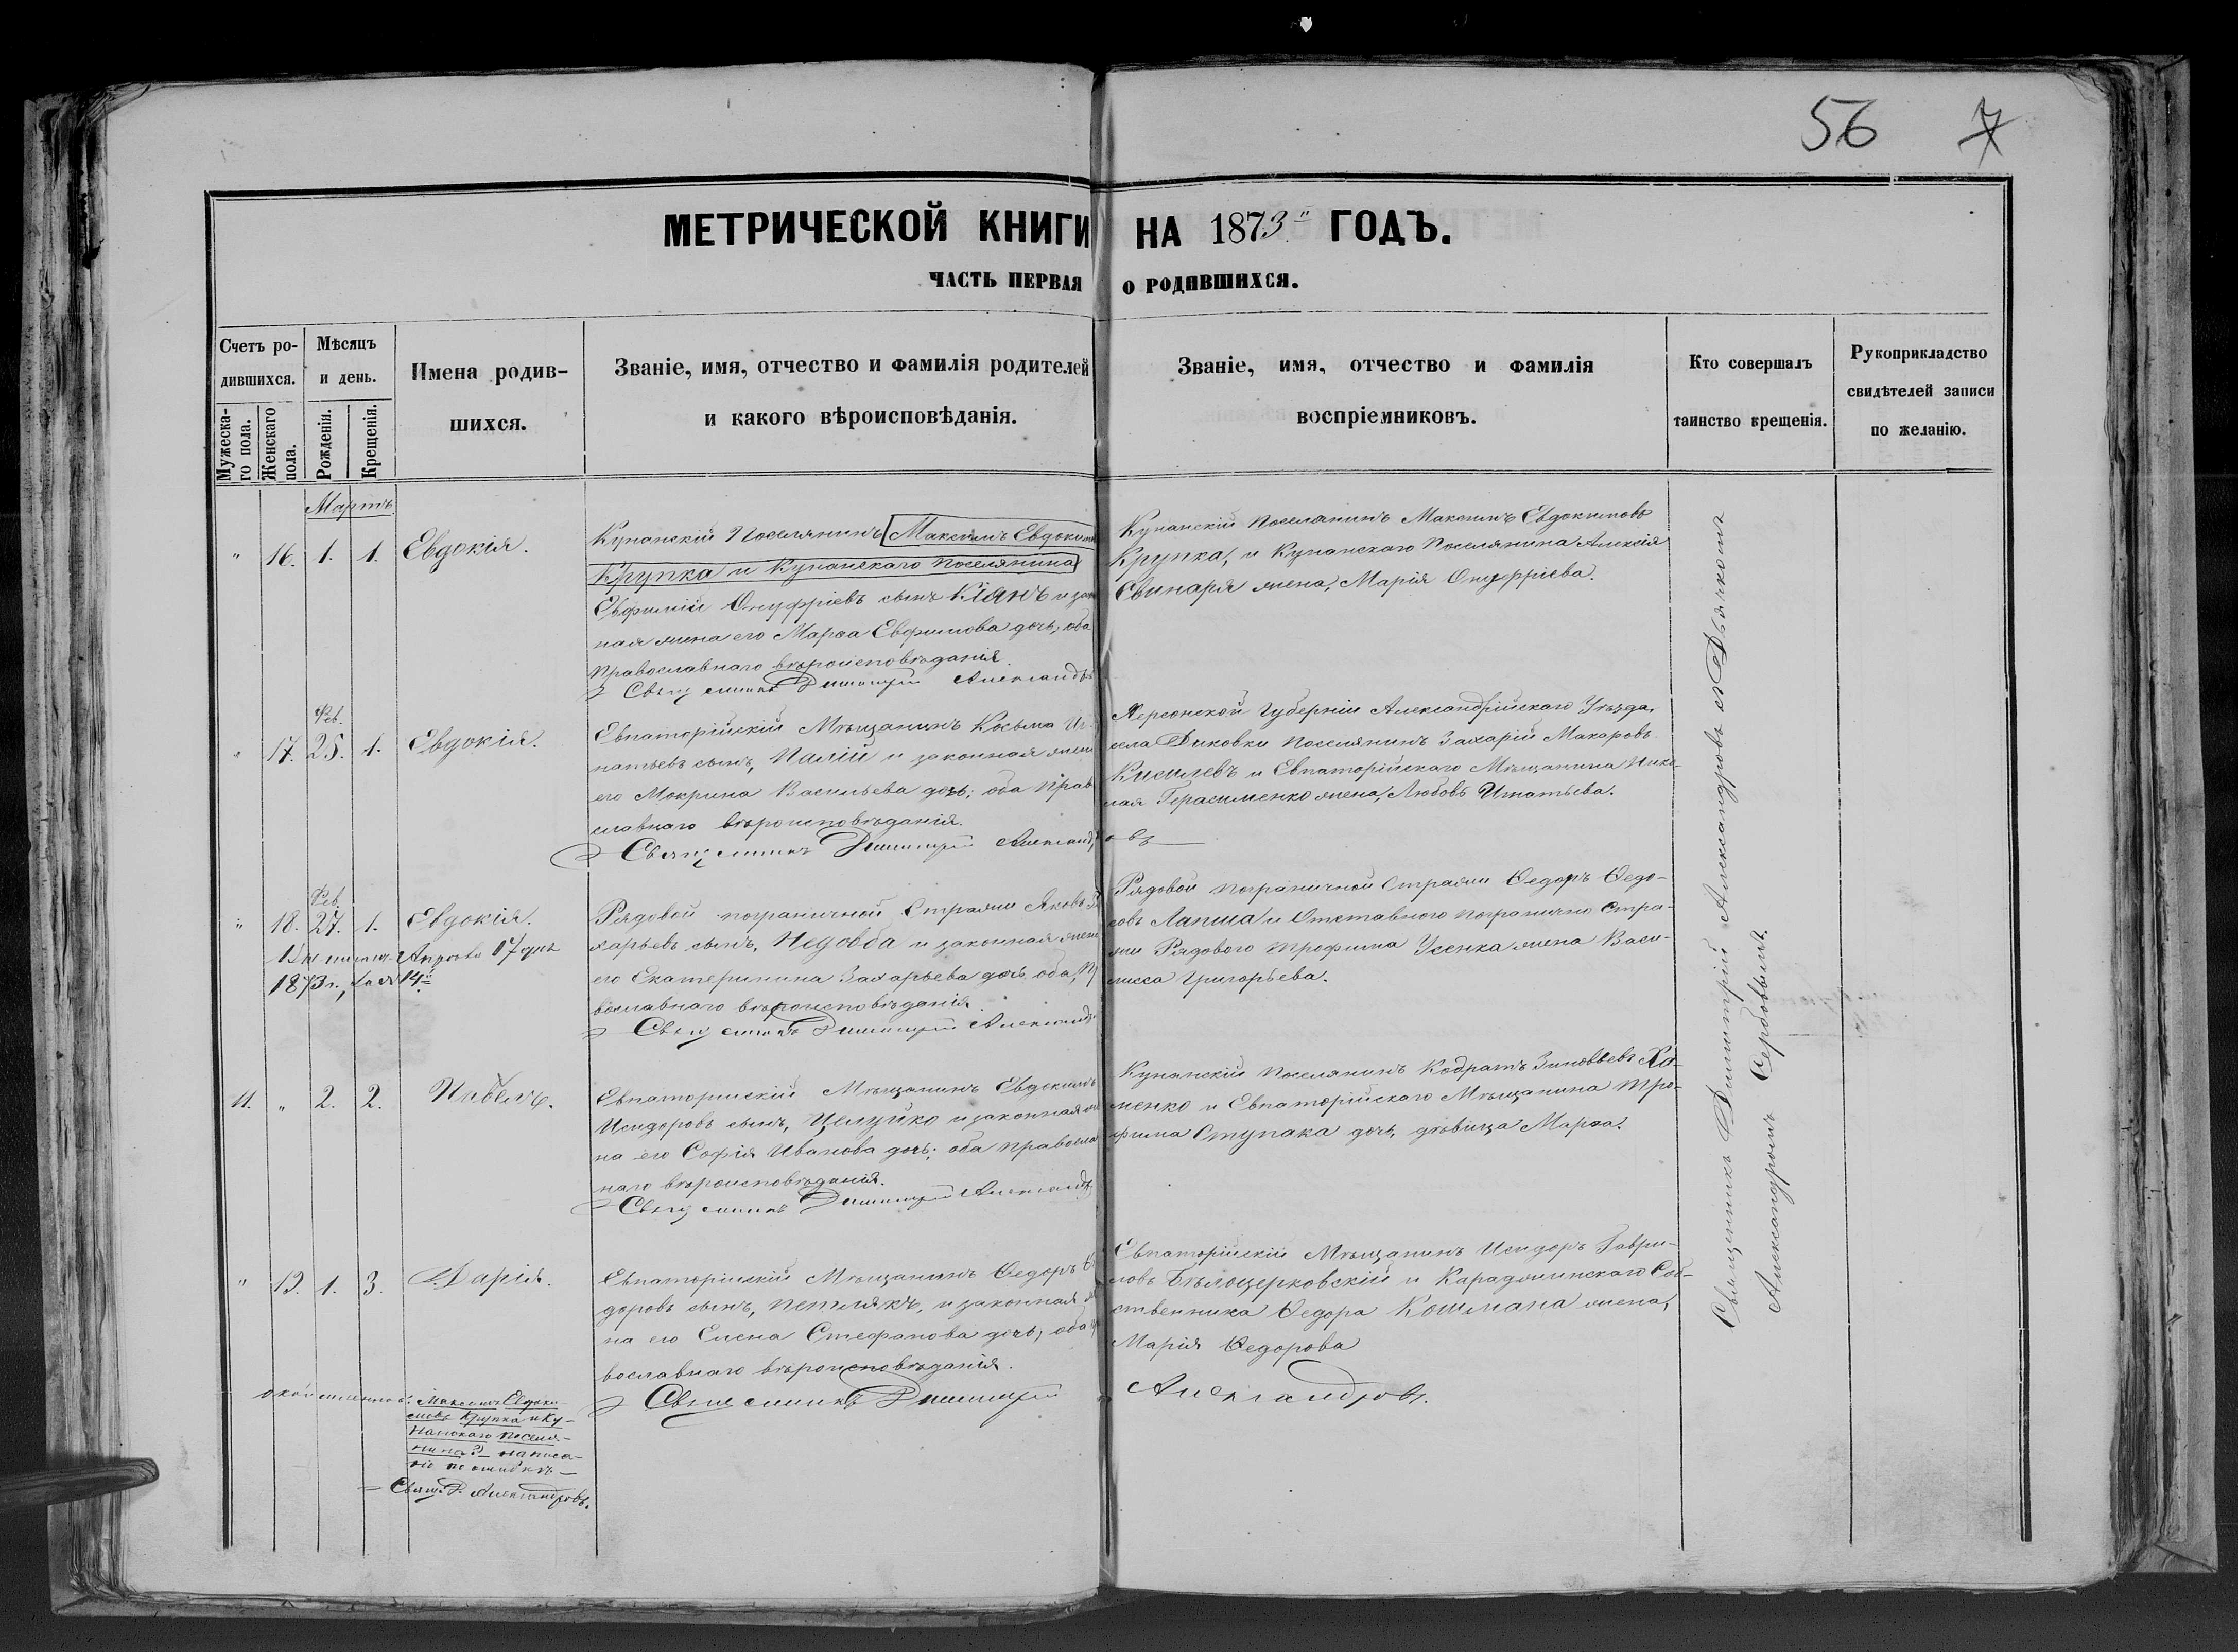 56 7
МЕТРИЧЕСКОЙ КНИГИ НА 1873 ГОДЪ.
ЧАСТЬ ПЕРВАЯ О РОДИВШИХСЯ.
Счетъ ро-
дившихся.
Мужеска-
го пола.
Женскаго
пола.
Мѣсяцъ
и день.
Рожденія.
Крещенія.
Имена родив-
шихся.
Званіе, имя, отчество и фамилія родителей
и какого вѣроисповѣданія.
Званіе, имя, отчество и фамилія
воспріемниковъ.
Кто совершалъ
таинство крещенія.
Рукоприкладство
свидѣтелей записи
по желанію.
Мартъ
" 16. 1. 1. Евдокія.
Купанскій Поселянинъ Максимъ Евдоким
Крупка и Купанскаго Поселянина
Евфимій Онуфріевъ сынъ Кіянъ и зак
ная жена его Марѳа Евфимова дочь; оба
православнаго вѣроисповѣданія.
Священникъ Димитрій Александръ
Купанскій Поселянинъ Максимъ Евдокимовъ
Крупка, и Купанскаго Поселянина Алексія
Свинаря жена, Марія Онуфріева.
Фев.
" 17. 25. 1. Евдокія.
Евпаторійскій Мѣщанинъ Косьма Иг-
натьевъ сынъ, Палій и законная жена
его Мокрина Васильева дочь; оба прав
славнаго вѣроисповѣданія.
Священникъ Димитрій Александровъ
Херсонской Губерніи Александрійскаго Уѣзда,
села Диковки поселянинъ Захарій Макаровъ
Киселевъ и Евпаторійскаго Мѣщанина Нико-
лая Герасименко жена, Любовь Игнатьева.
Фев.
" 18. 27. 1. Евдокія.
Апрѣля 17 дня
1873 г., за № 14
Рядовой пограничной Стражи Яковъ За
харьевъ сынъ, Недовба и законная жен
его Екатеринина Захарьева дочь оба, п
вославнаго вѣроисповѣданія.
Священникъ Димитрій Александ
Рядовой пограничной Стражи Ѳедоръ Ѳедо-
ровъ Лапша и Отставного погранично Стра-
жи Рядового Трофима Усенка жена Васи-
лисса Григорьева.
11. " 2. 2. Павелъ.
Евпаторийскій Мѣщанинъ Евдокимъ
Исидоровъ сынъ, Целуйко и законная же
на его Софія Иванова дочь; оба правосла
наго вѣроисповѣданія.
Священникъ Димитрій Александ
Купанскій поселянинъ Кодратъ Зиновьевъ Хо-
менко и Евпаторійскаго Мѣщанина Тро-
фима Ступака дочь, дѣвица Марѳа.
" 19. 1. 3. Дарія.
Евпаторійскій Мѣщанинъ Ѳедоръ Ѳе
доровъ сынъ, Петлякъ, и законная же
на его Елена Стефанова дочь; оба п
вославнаго вѣроисповѣданія.
Священникъ Димитрій Александровъ.
Евпаторійскій Мѣщанинъ Исидоръ Гаври-
ловъ Бѣлоцерковскій и Караджинскаго Соб-
ственника Ѳедора Кошмана жена,
Марія Ѳедорова
Максимъ Евдоки-
мовъ Крупка и Ку-
панскаго Поселя-
нина написа-
но по ошибкѣ
Свящ. Д. Александровъ.
Священникъ Димитрій Александровъ съ Дьячкомъ
Александромъ Сербовымъ.